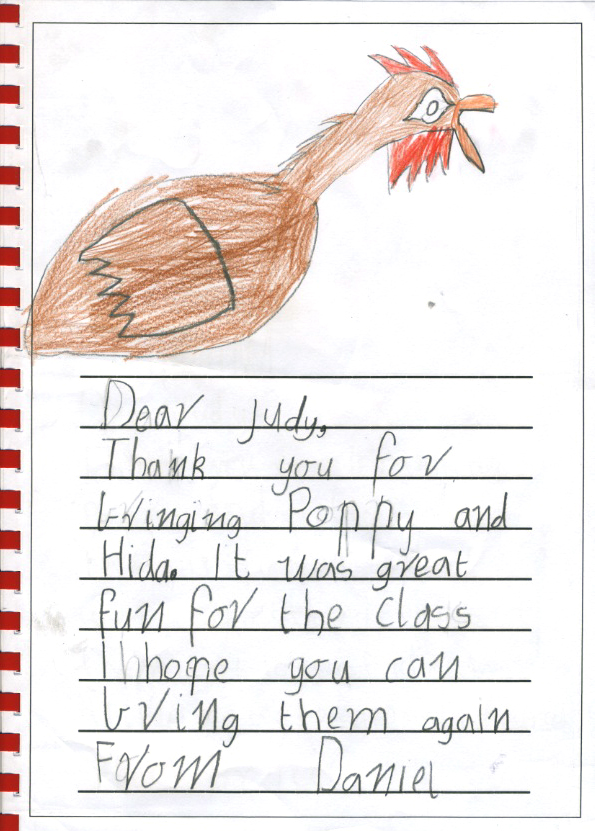 Dear Judy,
Thank you for
bringing Poppy and
Hida. It was great
fun for the class
I hope you can
bring them again
From Daniel